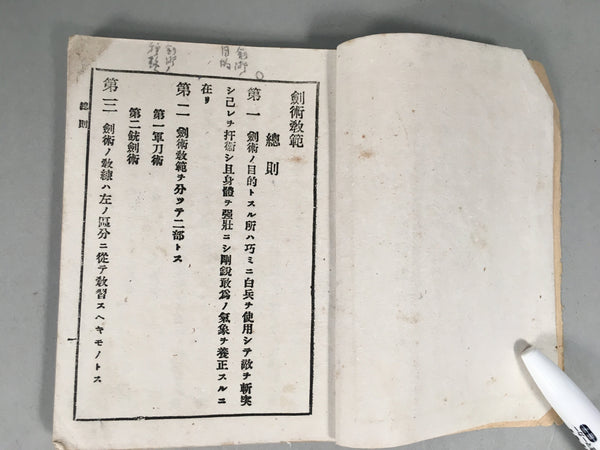 劍術教範
總則
第一 劍術ノ目的トスル所ハ巧ミニ白兵ヲ使用シテ敵ヲ斬突
シ己レヲ扞衞シ且身體ヲ强壯ニシ剛銳敢爲ノ氣象ヲ養正スルニ
在リ
第二 劍術教範ヲ分ツテ二部トス
第一軍刀術
第二銃劍術
第三 劍術ノ敎練ハ左ノ區分ニ從テ敎習スヘキモノトス
總則
一